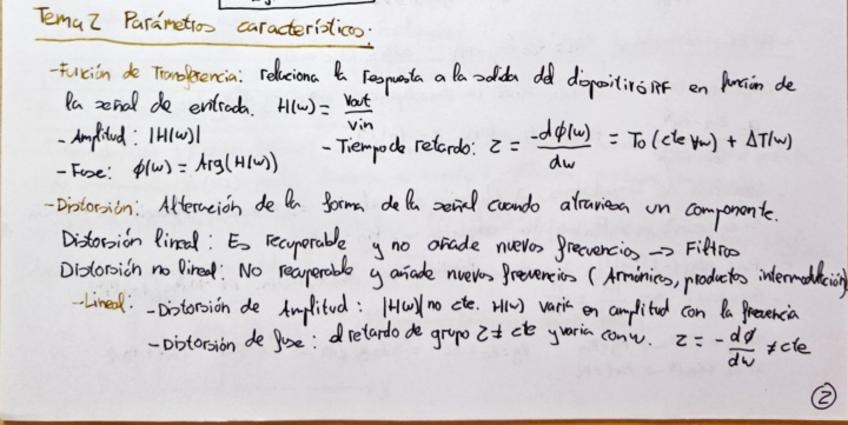 Tema 2 Parámetros característicos.
-Función de Transferencia: relaciona la respuesta a la salida del dispositivo RF en función de
la señal de entrada. H(w) = Vout/Vin
- Amplitud: |H(w)|
- Tiempo de retardo: τ = -dϕ(w)/dw = To (cte ∀w) + ΔT(w)
- Fase: ϕ(w) = Arg(H(w))
-Distorsión: Alteración de la forma de la señal cuando atraviesa un componente.
Distorsión lineal: Es recuperable y no añade nuevas frecuencias → Filtros
Distorsión no lineal: No recuperable y añade nuevas frecuencias (Armónicos, productos intermodulación)
-Lineal: -Distorsión de Amplitud: |H(w)| no cte. H(w) varía en amplitud con la frecuencia
-Distorsión de fase: el retardo de grupo τ ≠ cte y varía con w. τ = -dϕ/dw ≠ cte
2